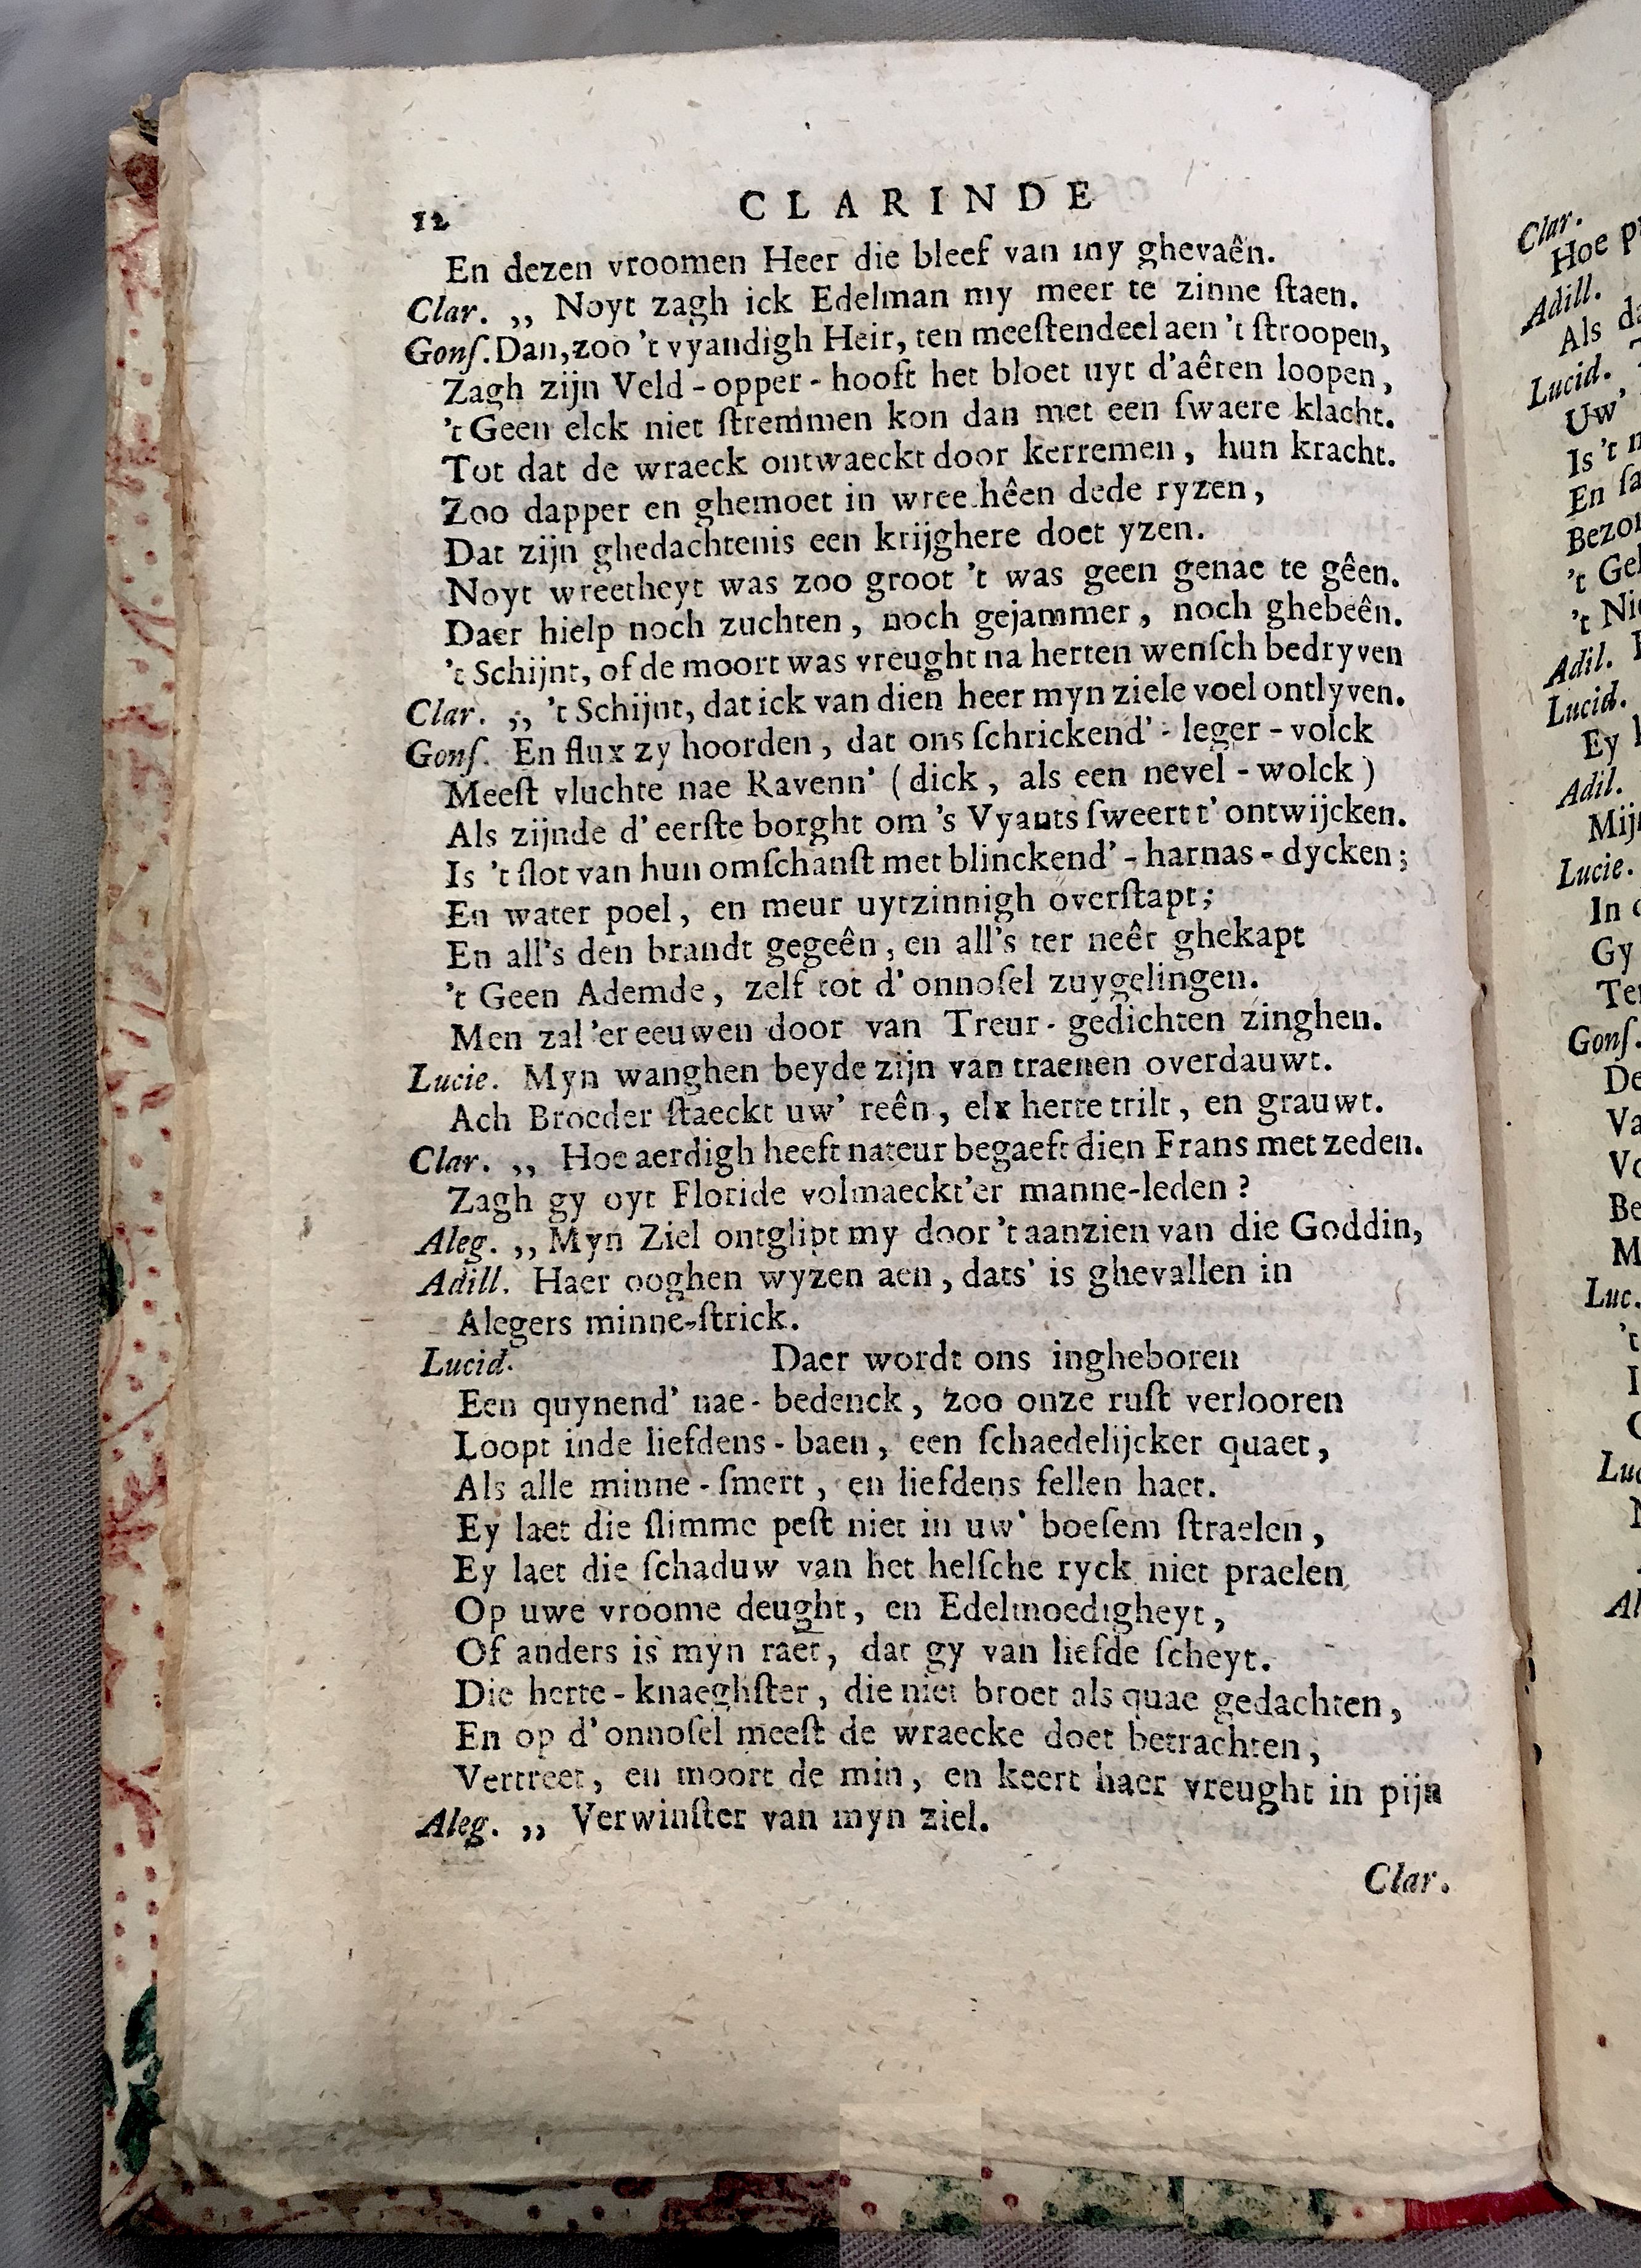 12 CLARINDE
En dezen vroomen Heer die bleef van my ghevaên.
Clar. ,, Noyt zagh ick Edelman my meer te zinne ſtaen.
Gonſ. Dan, zoo 't vyandigh Heir, ten meeſtendeel aen 't ſtroopen,
Zagh zijn Veld-opper-hooft het bloet uyt d'aêren loopen,
't Geen elck niet ſtremmen kon dan met een ſwaere klacht.
Tot dat de wraeck ontwaeckt door kerremen, hun kracht.
Zoo dapper en ghemoet in wree.hêen dede ryzen,
Dat zijn ghedachtenis een krijghere doet yzen.
Noyt wreetheyt was zoo groot 't was geen genae te gêen.
Daer hielp noch zuchten, noch gejammer, noch ghebeên.
't Schijnt, of de moort was vreught na herten wenſch bedryven
Clar. ,, 't Schijnt, dat ick van dien heer myn ziele voel ontlyven.
Gonſ. En flux zy hoorden, dat ons ſchrickend'-leger-volck
Meeſt vluchte nae Ravenn' (dick, als een nevel-wolck)
Als zijnde d'eerſte borght om 's Vyants ſweert t'ontwijcken.
Is 't ſlot van hun omſchanſt met blinckend'-harnas-dycken;
En water poel, en meur uytzinnigh overſtapt;
En all's den brandt gegeên, en all's ter neêr ghekapt
't Geen Ademde, zelf tot d'onnoſel zuygelingen.
Men zal 'er eeuwen door van Treur-gedichten zinghen.
Lucie. Myn wanghen beyde zijn van traenen overdauwt.
Ach Broeder ſtaeckt uw' reên, elx herte trilt, en grauwt.
Clar. ,, Hoe aerdigh heeft nateur begaeft dien Frans met zeden.
Zagh gy oyt Floride volmaeckt'er manne-leden?
Aleg. ,, Myn Ziel ontglipt my door 't aanzien van die Goddin,
Adill. Haer ooghen wyzen aen, dats' is ghevallen in
Alegers minne-ſtrick.
Lucid. Daer wordt ons ingheboren
Een quynend' nae-bedenck, zoo onze ruſt verlooren
Loopt inde liefdens-baen, een ſchaedelijcker quaet,
Als alle minne-ſmert, en liefdens fellen haet.
Ey laet die ſlimme peſt niet in uw' boeſem ſtraelen,
Ey laet die ſchaduw van het helſche ryck niet praelen
Op uwe vroome deught, en Edelmoedigheyt,
Of anders is myn raet, dat gy van liefde ſcheyt.
Die herte-knaeghſter, die niet broet als quae gedachten,
En op d'onnoſel meeſt de wraecke doet betrachten,
Vertreet, en moort de min, en keert haer vreught in pijn
Aleg. ,, Verwinſter van myn ziel.
Clar.
Clar.
Hoe
Adill.
Als
Lucid.
Uw'
Is 't
En
Adil.
Lucid.
Ey
Adil.
Lucie.
In
Gy
Gonſ.
De
Luc.